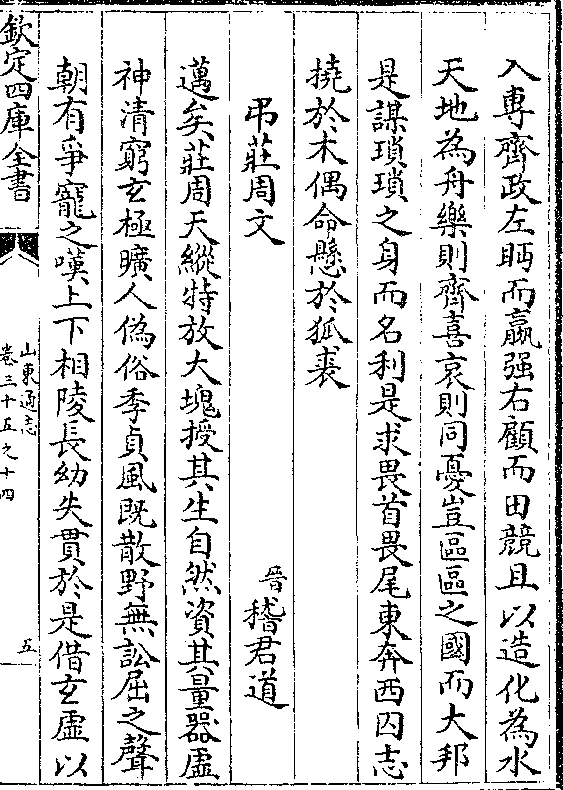 入専齊政左眄而嬴强右顧而田競且以造化為水
天地為舟樂則齊喜哀則同憂豈區區之國而大邦
是謀瑣瑣之身而名利是求畏首畏尾東奔西囚志
撓於木偶命懸於狐裘
弔莊周文
晉 嵇君道
邁矣莊周天縱特放大塊授其生自然資其量器虛
神清窮玄極曠人偽俗季貞風既散野無訟屈之聲
朝有爭寵之嘆上下相陵長幼失貫於是借玄虛以
欽定四庫全書
山東通志
卷三十五之十四
五